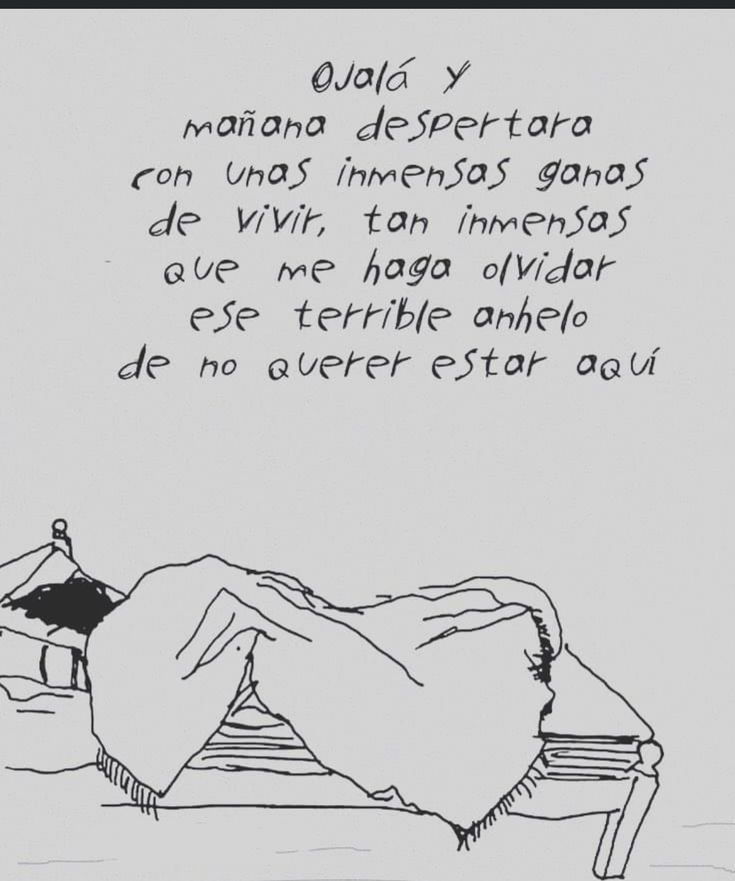 Ojalá y
mañana despertara
con unas inmensas ganas
de vivir, tan inmensas
que me haga olvidar
ese terrible anhelo
de no querer estar aquí